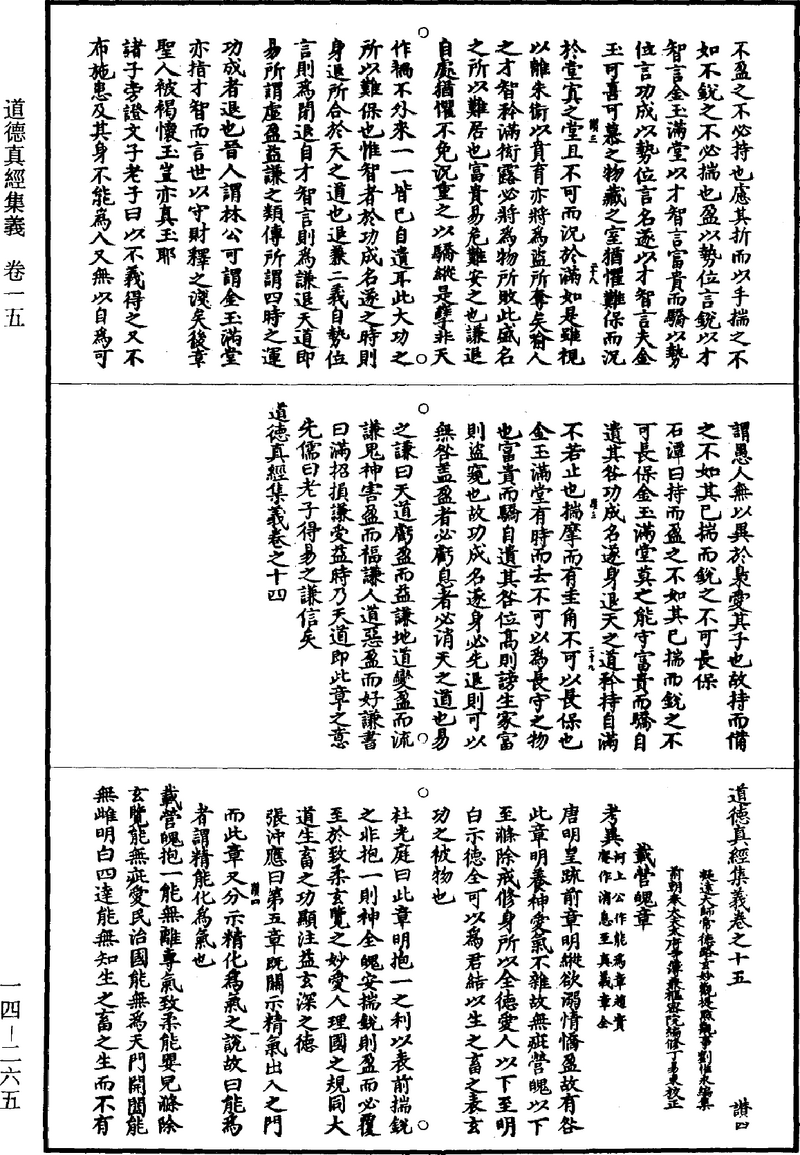 不盈之不必持也慮其折而以手揣之不
如不銳之不必揣也盈以勢位言銳以才
智言金玉滿堂以才智言富貴而驕以勢
位言功成以勢位言名遂以才智言夫金
玉可喜可慕之物藏之室猶懼難保而況
讚三
二十八
於堂寘之堂且不可而況於滿如是雖視
以離朱衛以賁育亦將為盜所奪矣喻人
之才智矜滿衒露必將為物所敗此盛名
之所以難居也富貴易危難安之也謙退
自處猶懼不免況重之以驕縱是孽非天
作禍不外來一一皆己自遺耳此大功之
所以難保也惟智者於功成名遂之時則
身退所合於天之道也退兼二義自勢位
言則為閉退自才智言則為謙退天道即
易所謂虛盈益謙之類傳所謂四時之運
功成者退也晉人謂林公可謂金玉滿堂
亦指才智而言世以守財釋之淺矣後章
聖人被褐懷玉豈亦真玉耶
諸子旁證文子老子曰以不義得之又不
布施患及其身不能為人又無以自為可
謂愚人無以異於梟愛其子也故持而備
之不如其已揣而銳之不可長保
石潭曰持而盈之不如其已揣而銳之不
可長保金玉滿堂莫之能守富貴而驕自
遺其咎功成名遂身退天之道矜持自滿
讚三
二十九
不若止也揣摩而有圭角不可以長保也
金玉滿堂有時而去不可以為長守之物
也富貴而驕自遺其咎位高則謗生家富
則盜窺也故功成名遂身必先退則可以
無咎蓋盈者必虧息者必消天之道也易
之謙曰天道虧盈而益謙地道變盈而流
謙鬼神害盈而福謙人道惡盈而好謙書
曰滿招損謙受益時乃天道即此章之意
先儒曰老子得易之謙信矣
道德真經集義卷之十四
道德真經集義卷之十五
讚四
凝遠大師常德路玄妙觀提點觀事劉惟永編集
前朝奉大夫太府寺簿兼樞密院編修丁易東校正
載營魄章
考異河上公作能為章趙實
菴作消息至真義章全
唐明皇䟽前章明縱欲溺情憍盈故有咎
此章明養神愛氣不雜故無疵營魄以下
至滌除戒修身所以全德愛人以下至明
白示德全可以為君結以生之畜之表玄
功之被物也
杜光庭曰此章明抱一之利以表前揣銳
之非抱一則神全魄安揣銳則盈而必覆
至於致柔玄覽之妙愛人理國之規同大
道生畜之功顯注益玄深之德
張沖應曰第五章既關示精氣出入之門
讚四
一
而此章又分示精化為氣之說故曰能為
者謂精能化為氣也
載營魄抱一能無離專氣致柔能嬰兒滌除
玄覽能無疵愛民治國能無為天門開闔能
無雌明白四達能無知生之畜之生而不有
道德真經集義　卷一五
一四－二六五